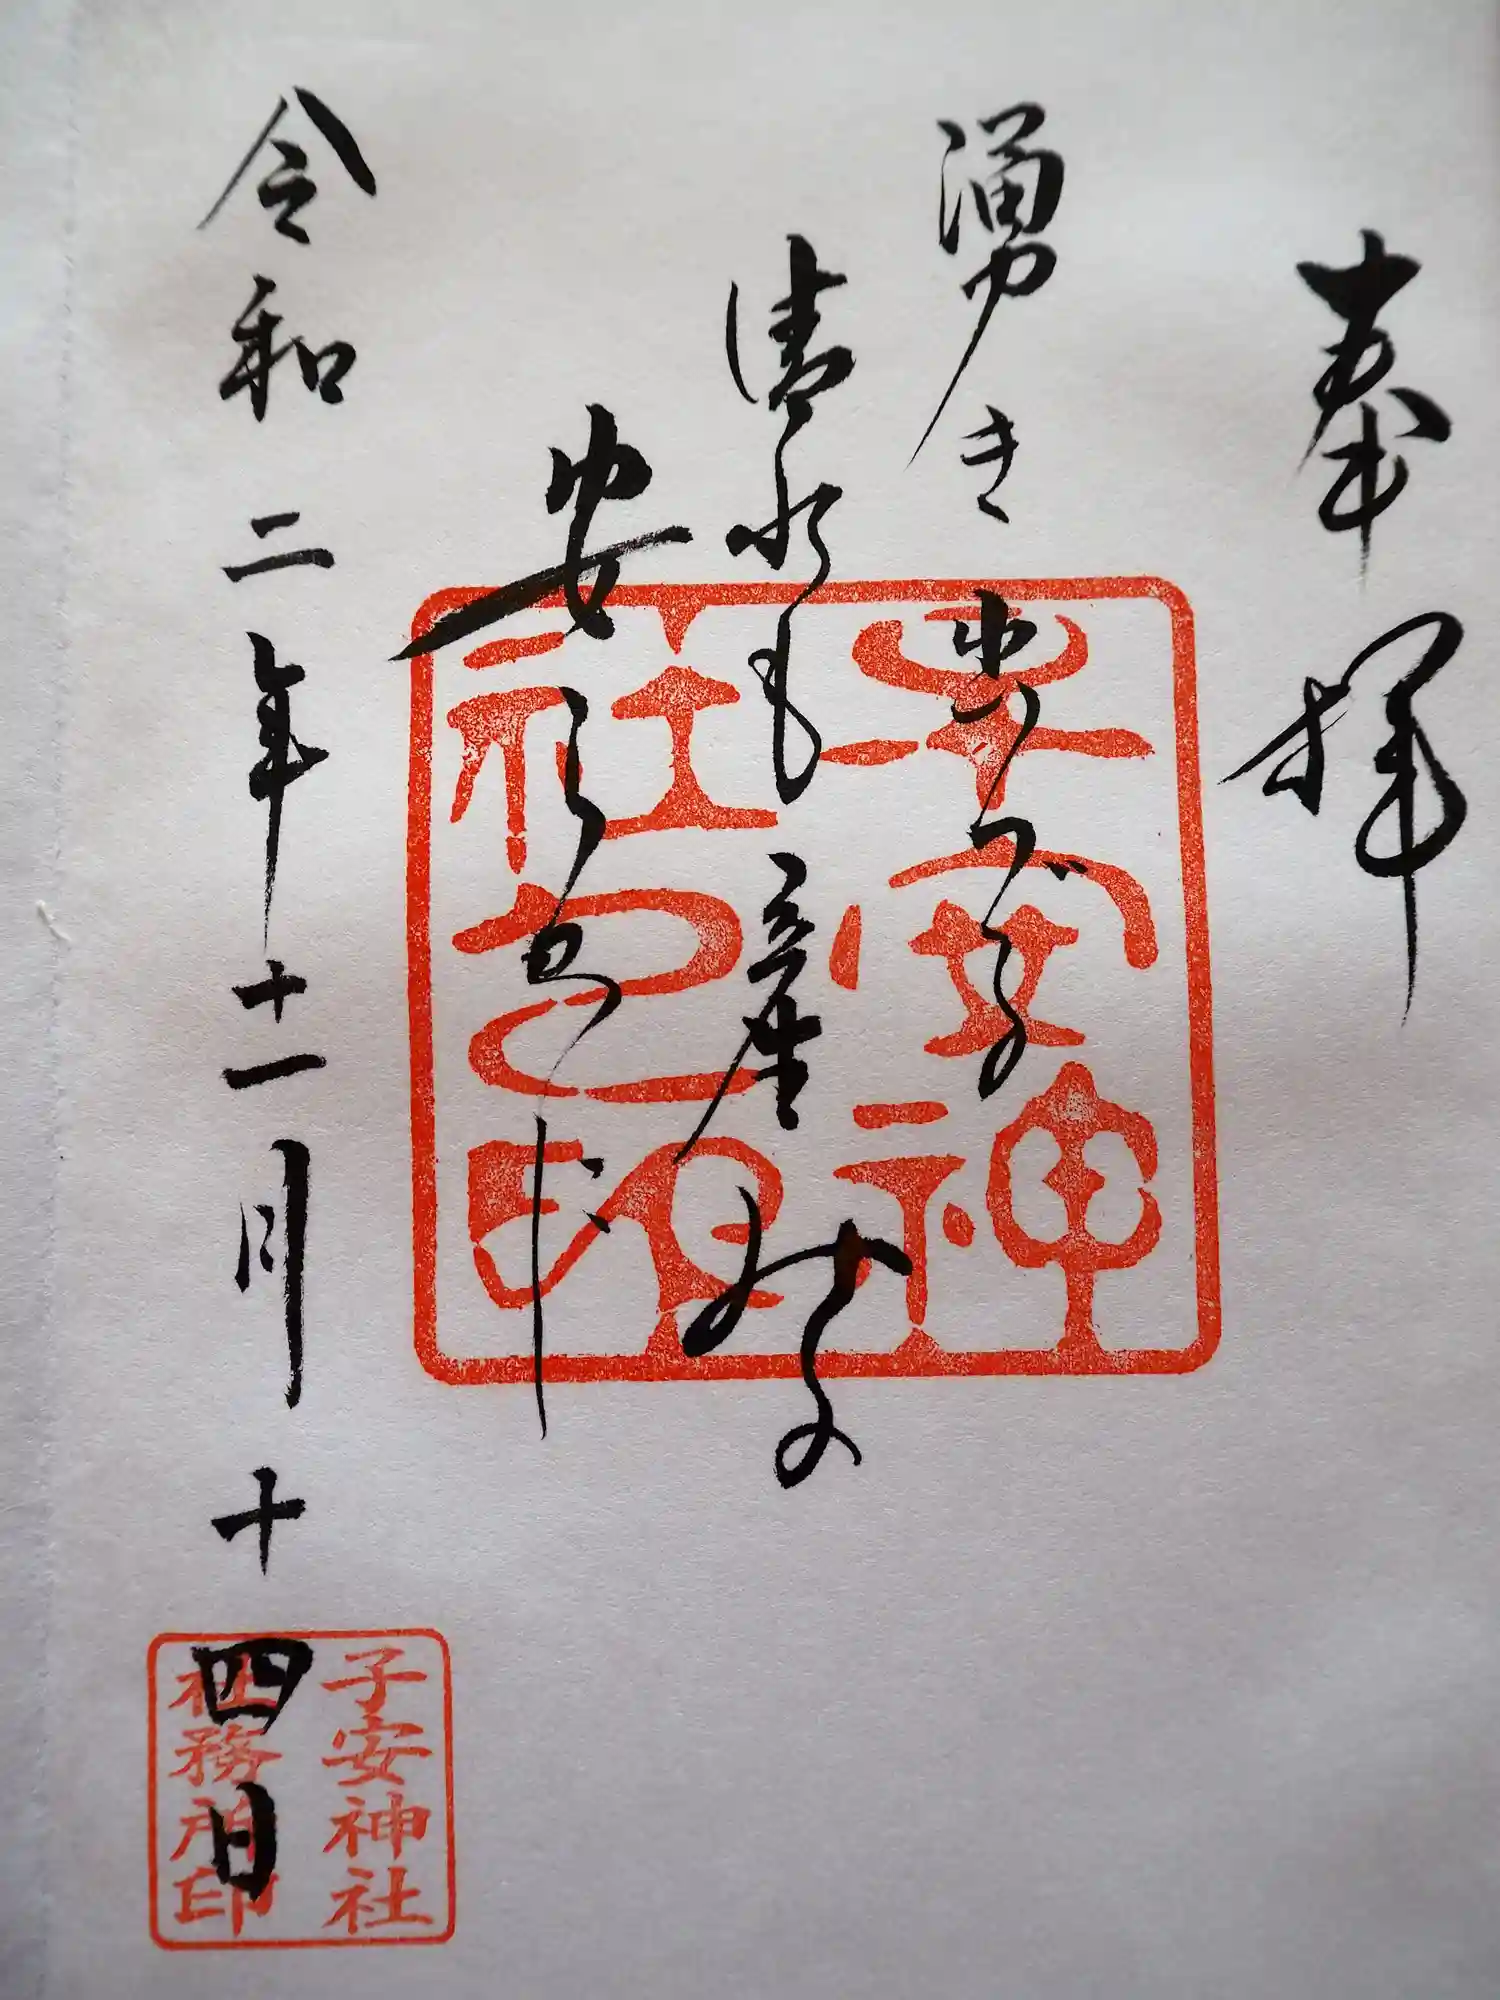 奉拝
湧き出づる
清水も産
安ら
令和二年十一月十四日
子安神
社
印
子安神社
社務所印